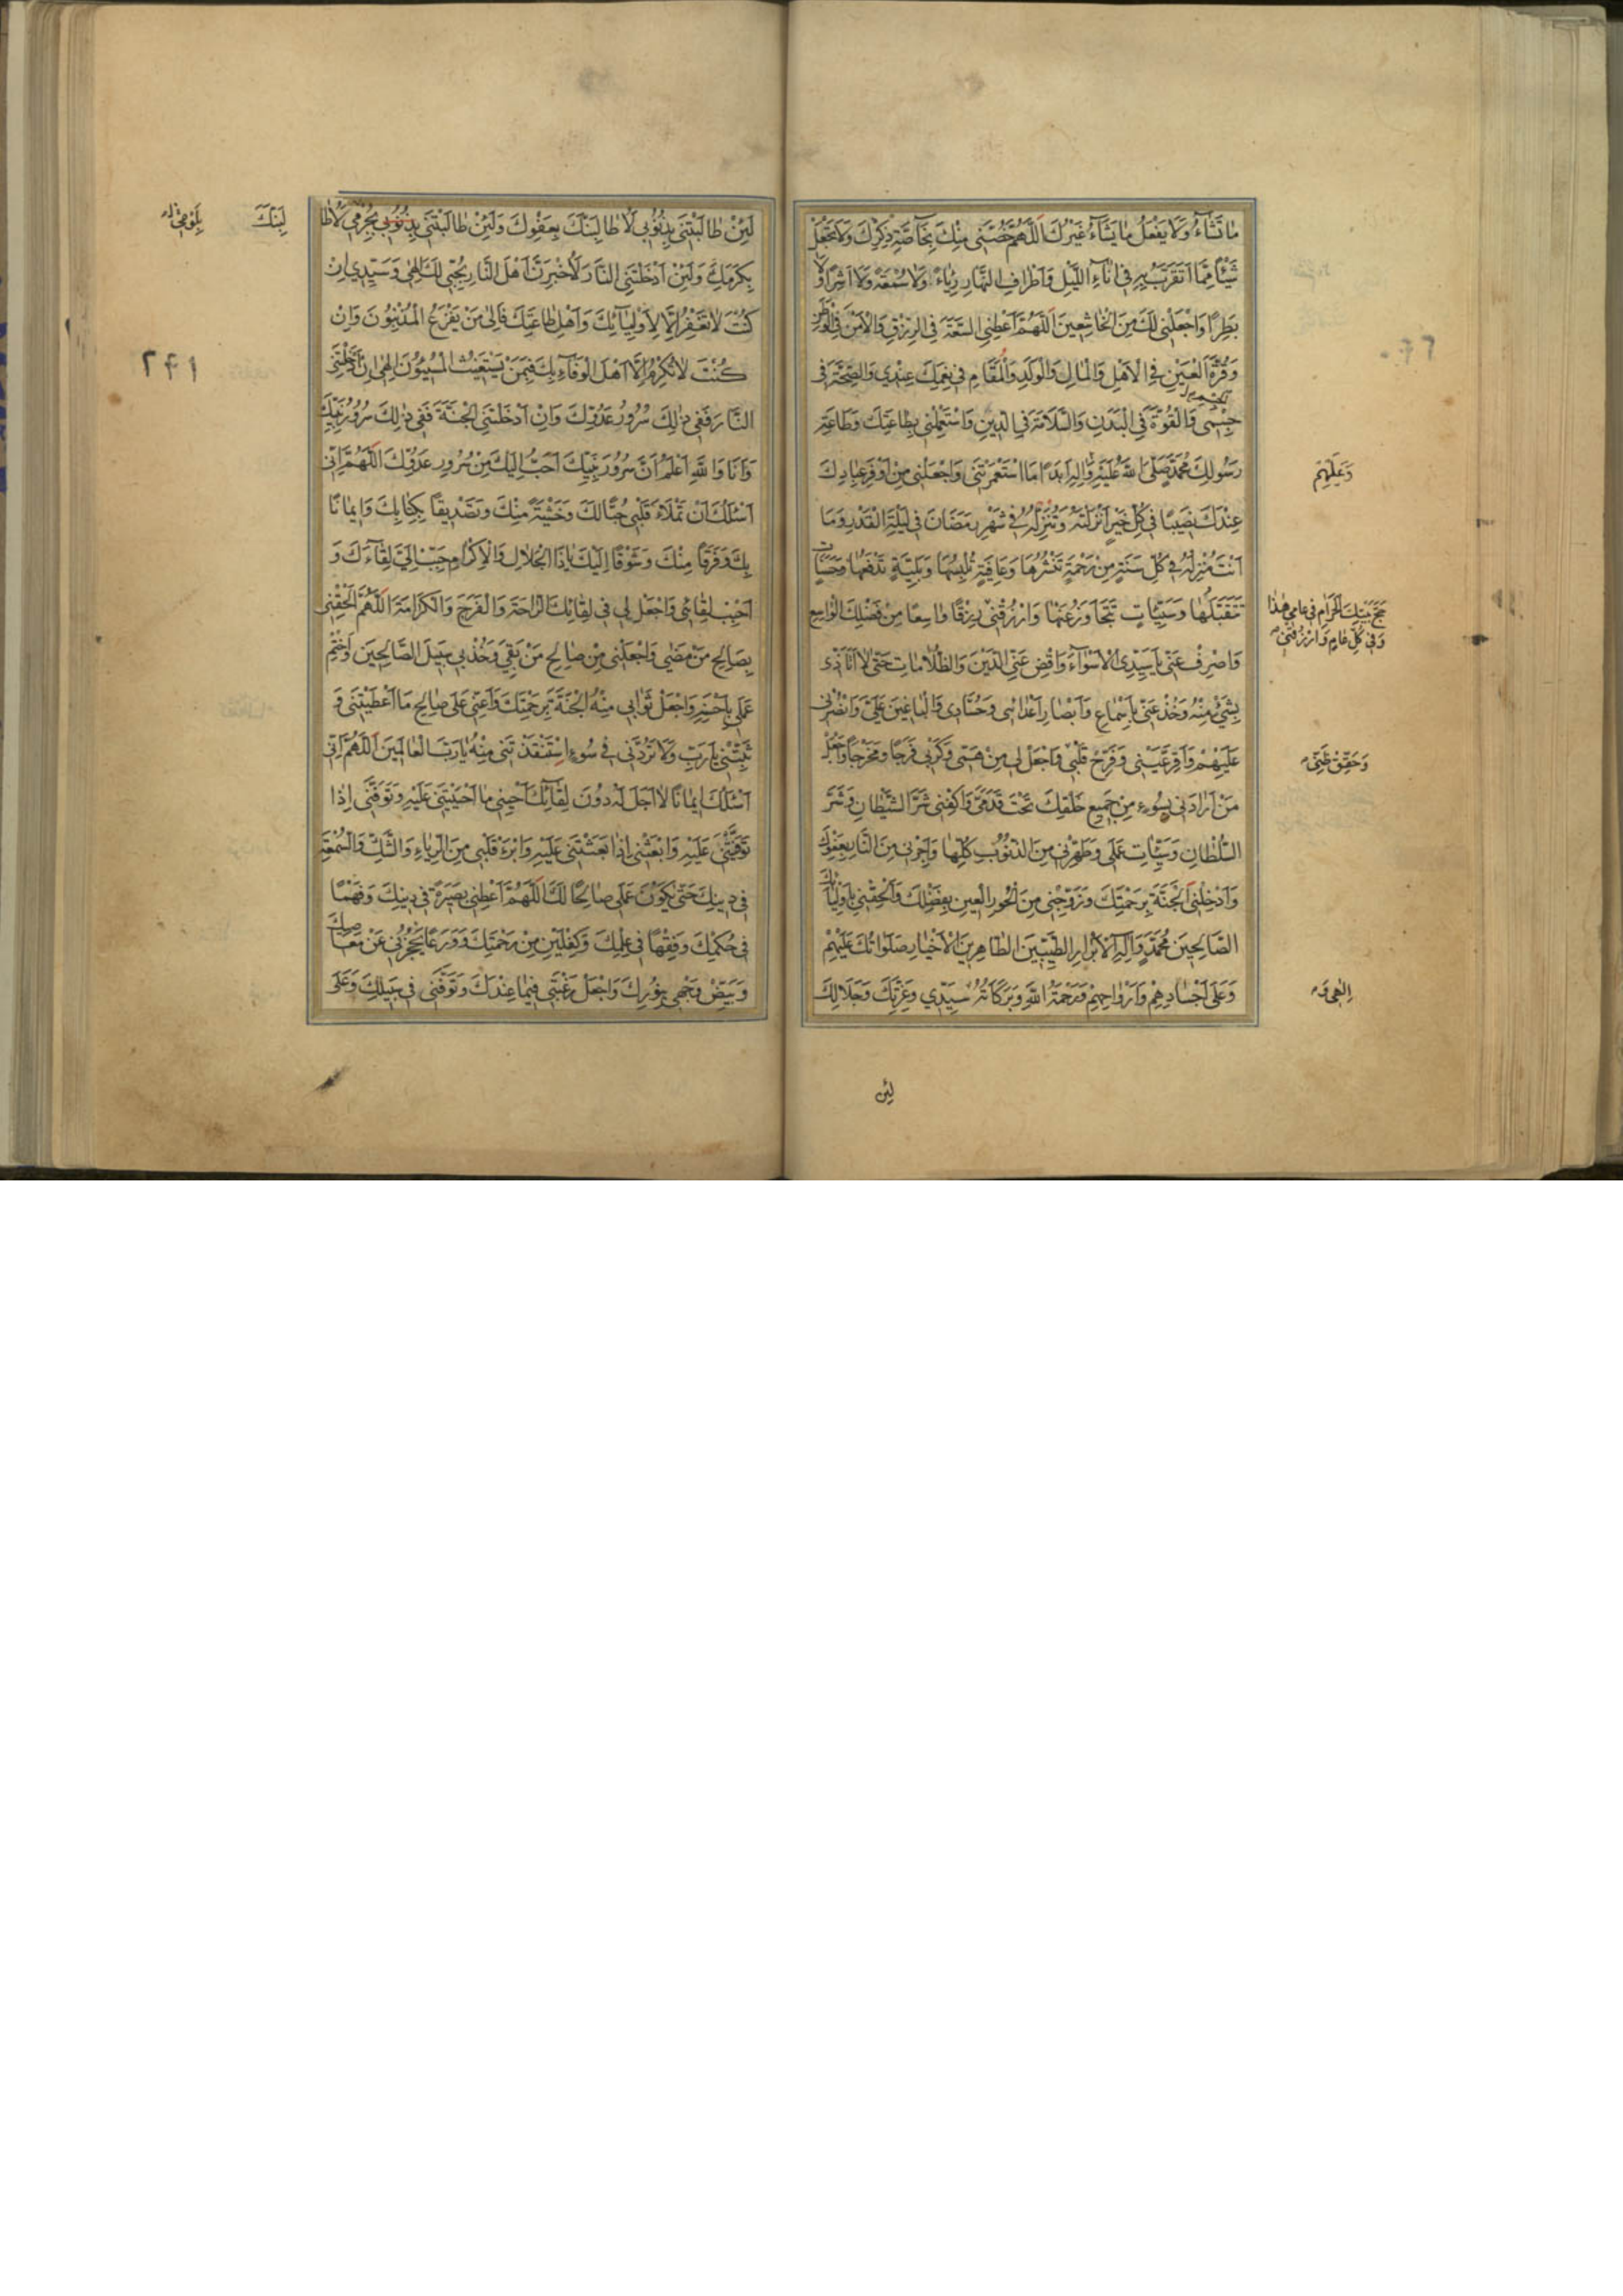 مَا تَشَاءُ وَلَا يَفْعَلُ مَا يَشَاءُ غَيْرُكَ اَللّٰهُمَّ خُصَّنِي مِنْكَ بِخَاصَّةِ ذِكْرِكَ وَلَا تَجْعَلْ
شَيْئًا مِمَّا اَتَقَرَّبُ بِهِ فِي اٰنَاءِ اللَّيْلِ وَاَطْرَافِ النَّهَارِ رِيَاءً وَلَا سُمْعَةً وَلَا اَشَرًا وَلَا
بَطَرًا وَاجْعَلْنِي لَكَ مِنَ الْخَاشِعِينَ اَللّٰهُمَّ اَعْطِنِي السَّعَةَ فِي الرِّزْقِ وَالْاَمْنَ فِي الْوَطَنِ
وَقُرَّةَ الْعَيْنِ فِي الْاَهْلِ وَالْمَالِ وَالْوَلَدِ وَالْمُقَامَ فِي نِعَمِكَ عِنْدِي وَالصِّحَّةَ فِي
جِسْمِي وَالْقُوَّةَ فِي الْبَدَنِ وَالسَّلَامَةَ فِي الدِّينِ وَاسْتَعْمِلْنِي بِطَاعَتِكَ وَطَاعَةِ
رَسُولِكَ مُحَمَّدٍ صَلَّى اللّٰهُ عَلَيْهِ وَاٰلِهِ اَبَدًا مَا اسْتَعْمَرْتَنِي وَاجْعَلْنِي مِنْ اَوْفَرِ عِبَادِكَ
وَعَلَيْهِمْ
عِنْدَكَ نَصِيبًا فِي كُلِّ خَيْرٍ اَنْزَلْتَهُ وَتُنْزِلُهُ فِي شَهْرِ رَمَضَانَ فِي لَيْلَةِ الْقَدْرِ وَمَا
اَنْتَ مُنْزِلُهُ فِي كُلِّ سَنَةٍ مِنْ رَحْمَةٍ تَنْشُرُهَا وَعَافِيَةٍ تُلْبِسُهَا وَبَلِيَّةٍ تَدْفَعُهَا وَحَسَنَاتٍ
تَتَقَبَّلُهَا وَسَيِّئَاتٍ تَتَجَاوَزُ عَنْهَا وَارْزُقْنِي رِزْقًا وَاسِعًا مِنْ فَضْلِكَ الْوَاسِعِ
حَجَّ بَيْتِكَ الْحَرَامِ فِي عَامِي هٰذَا
وَفِي كُلِّ عَامٍ وَارْزُقْنِي
وَاصْرِفْ عَنِّي يَا سَيِّدِي الْاَسْوَاءَ وَاقْضِ عَنِّي الدَّيْنَ وَالظُّلَامَاتِ حَتّٰى لَا اَتَاَذّٰى
بِشَيْءٍ مِنْهُ وَخُذْ عَنِّي بِاَسْمَاعِ وَاَبْصَارِ اَعْدَائِي وَحُسَّادِي وَالْبَاغِينَ عَلَيَّ وَانْصُرْنِي
عَلَيْهِمْ وَاَقِرَّ عَيْنِي وَفَرِّحْ قَلْبِي وَاجْعَلْ لِي مِنْ هَمِّي وَكَرْبِي فَرَجًا وَمَخْرَجًا وَاجْعَلْ
وَحَقِّقْ ظَنِّي
مَنْ اَرَادَنِي بِسُوءٍ مِنْ جَمِيعِ خَلْقِكَ تَحْتَ قَدَمَيَّ وَاكْفِنِي شَرَّ الشَّيْطَانِ وَشَرَّ
السُّلْطَانِ وَسَيِّئَاتِ عَمَلِي وَطَهِّرْنِي مِنَ الذُّنُوبِ كُلِّهَا وَاَجِرْنِي مِنَ النَّارِ بِعَفْوِكَ
وَاَدْخِلْنِي الْجَنَّةَ بِرَحْمَتِكَ وَزَوِّجْنِي مِنَ الْحُورِ الْعِينِ بِفَضْلِكَ وَاَلْحِقْنِي بِاَوْلِيَائِكَ
الصَّالِحِينَ مُحَمَّدٍ وَاٰلِهِ الْاَبْرَارِ الطَّيِّبِينَ الطَّاهِرِينَ الْاَخْيَارِ صَلَوَاتُكَ عَلَيْهِمْ
وَعَلٰى اَجْسَادِهِمْ وَاَرْوَاحِهِمْ وَرَحْمَةُ اللّٰهِ وَبَرَكَاتُهُ سَيِّدِي وَعِزَّتِكَ وَجَلَالِكَ
اِلٰهِي وَ
لَئِنْ
لَئِنْ طَالَبْتَنِي بِذُنُوبِي لَاُطَالِبَنَّكَ بِعَفْوِكَ وَلَئِنْ طَالَبْتَنِي بِذُنُوبِي بِجُرْمِي لَاُطَا
لِبَنَّكَ
بِلَؤْمِي
بِكَرَمِكَ وَلَئِنْ اَدْخَلْتَنِي النَّارَ لَاُخْبِرَنَّ اَهْلَ النَّارِ بِحُبِّي لَكَ اِلٰهِي وَسَيِّدِي اِنْ
كُنْتَ لَا تَغْفِرُ اِلَّا لِاَوْلِيَائِكَ وَاَهْلِ طَاعَتِكَ فَاِلٰى مَنْ يَفْزَعُ الْمُذْنِبُونَ وَاِنْ
كُنْتَ لَا تُكْرِمُ اِلَّا اَهْلَ الْوَفَاءِ بِكَ فَبِمَنْ يَسْتَغِيثُ الْمُسِيئُونَ اِلٰهِي اِنْ اَدْخَلْتَنِي
۲۴۱
النَّارَ فَفِي ذٰلِكَ سُرُورُ عَدُوِّكَ وَاِنْ اَدْخَلْتَنِي الْجَنَّةَ فَفِي ذٰلِكَ سُرُورُ نَبِيِّكَ
وَاَنَا وَاللّٰهِ اَعْلَمُ اَنَّ سُرُورَ نَبِيِّكَ اَحَبُّ اِلَيْكَ مِنْ سُرُورِ عَدُوِّكَ اَللّٰهُمَّ اِنِّي
اَسْئَلُكَ اَنْ تَمْلَاَ قَلْبِي حُبًّا لَكَ وَخَشْيَةً مِنْكَ وَتَصْدِيقًا بِكِتَابِكَ وَاِيمَانًا
بِكَ وَفَرَقًا مِنْكَ وَشَوْقًا اِلَيْكَ يَا ذَا الْجَلَالِ وَالْاِكْرَامِ حَبِّبْ اِلَيَّ لِقَاءَكَ وَ
اَحْبِبْ لِقَائِي وَاجْعَلْ لِي فِي لِقَائِكَ الرَّاحَةَ وَالْفَرَجَ وَالْكَرَامَةَ اَللّٰهُمَّ اَلْحِقْنِي
بِصَالِحِ مَنْ مَضٰى وَاجْعَلْنِي مِنْ صَالِحِ مَنْ بَقِيَ وَخُذْ بِي سَبِيلَ الصَّالِحِينَ وَاخْتِمْ
عَمَلِي بِاَحْسَنِهِ وَاجْعَلْ ثَوَابِي مِنْهُ الْجَنَّةَ بِرَحْمَتِكَ وَاَعِنِّي عَلٰى صَالِحِ مَا اَعْطَيْتَنِي وَ
ثَبِّتْنِي يَا رَبِّ وَلَا تَرُدَّنِي فِي سُوءٍ اسْتَنْقَذْتَنِي مِنْهُ يَا رَبَّ الْعَالَمِينَ اَللّٰهُمَّ اِنِّي
اَسْئَلُكَ اِيمَانًا لَا اَجَلَ لَهُ دُونَ لِقَائِكَ اَحْيِنِي مَا اَحْيَيْتَنِي عَلَيْهِ وَتَوَفَّنِي اِذَا
تَوَفَّيْتَنِي عَلَيْهِ وَابْعَثْنِي اِذَا بَعَثْتَنِي عَلَيْهِ وَابْرَءْ قَلْبِي مِنَ الرِّيَاءِ وَالشَّكِّ وَالسُّمْعَةِ
فِي دِينِكَ حَتّٰى يَكُونَ عَمَلِي صَالِحًا لَكَ اَللّٰهُمَّ اَعْطِنِي بَصِيرَةً فِي دِينِكَ وَفَهْمًا
فِي حُكْمِكَ وَفِقْهًا فِي عِلْمِكَ وَكِفْلَيْنِ مِنْ رَحْمَتِكَ وَوَرَعًا يَحْجُزُنِي عَنْ مَعَاصِيكَ
وَبَيِّضْ وَجْهِي بِنُورِكَ وَاجْعَلْ رَغْبَتِي فِيمَا عِنْدَكَ وَتَوَفَّنِي فِي سَبِيلِكَ وَعَلٰى